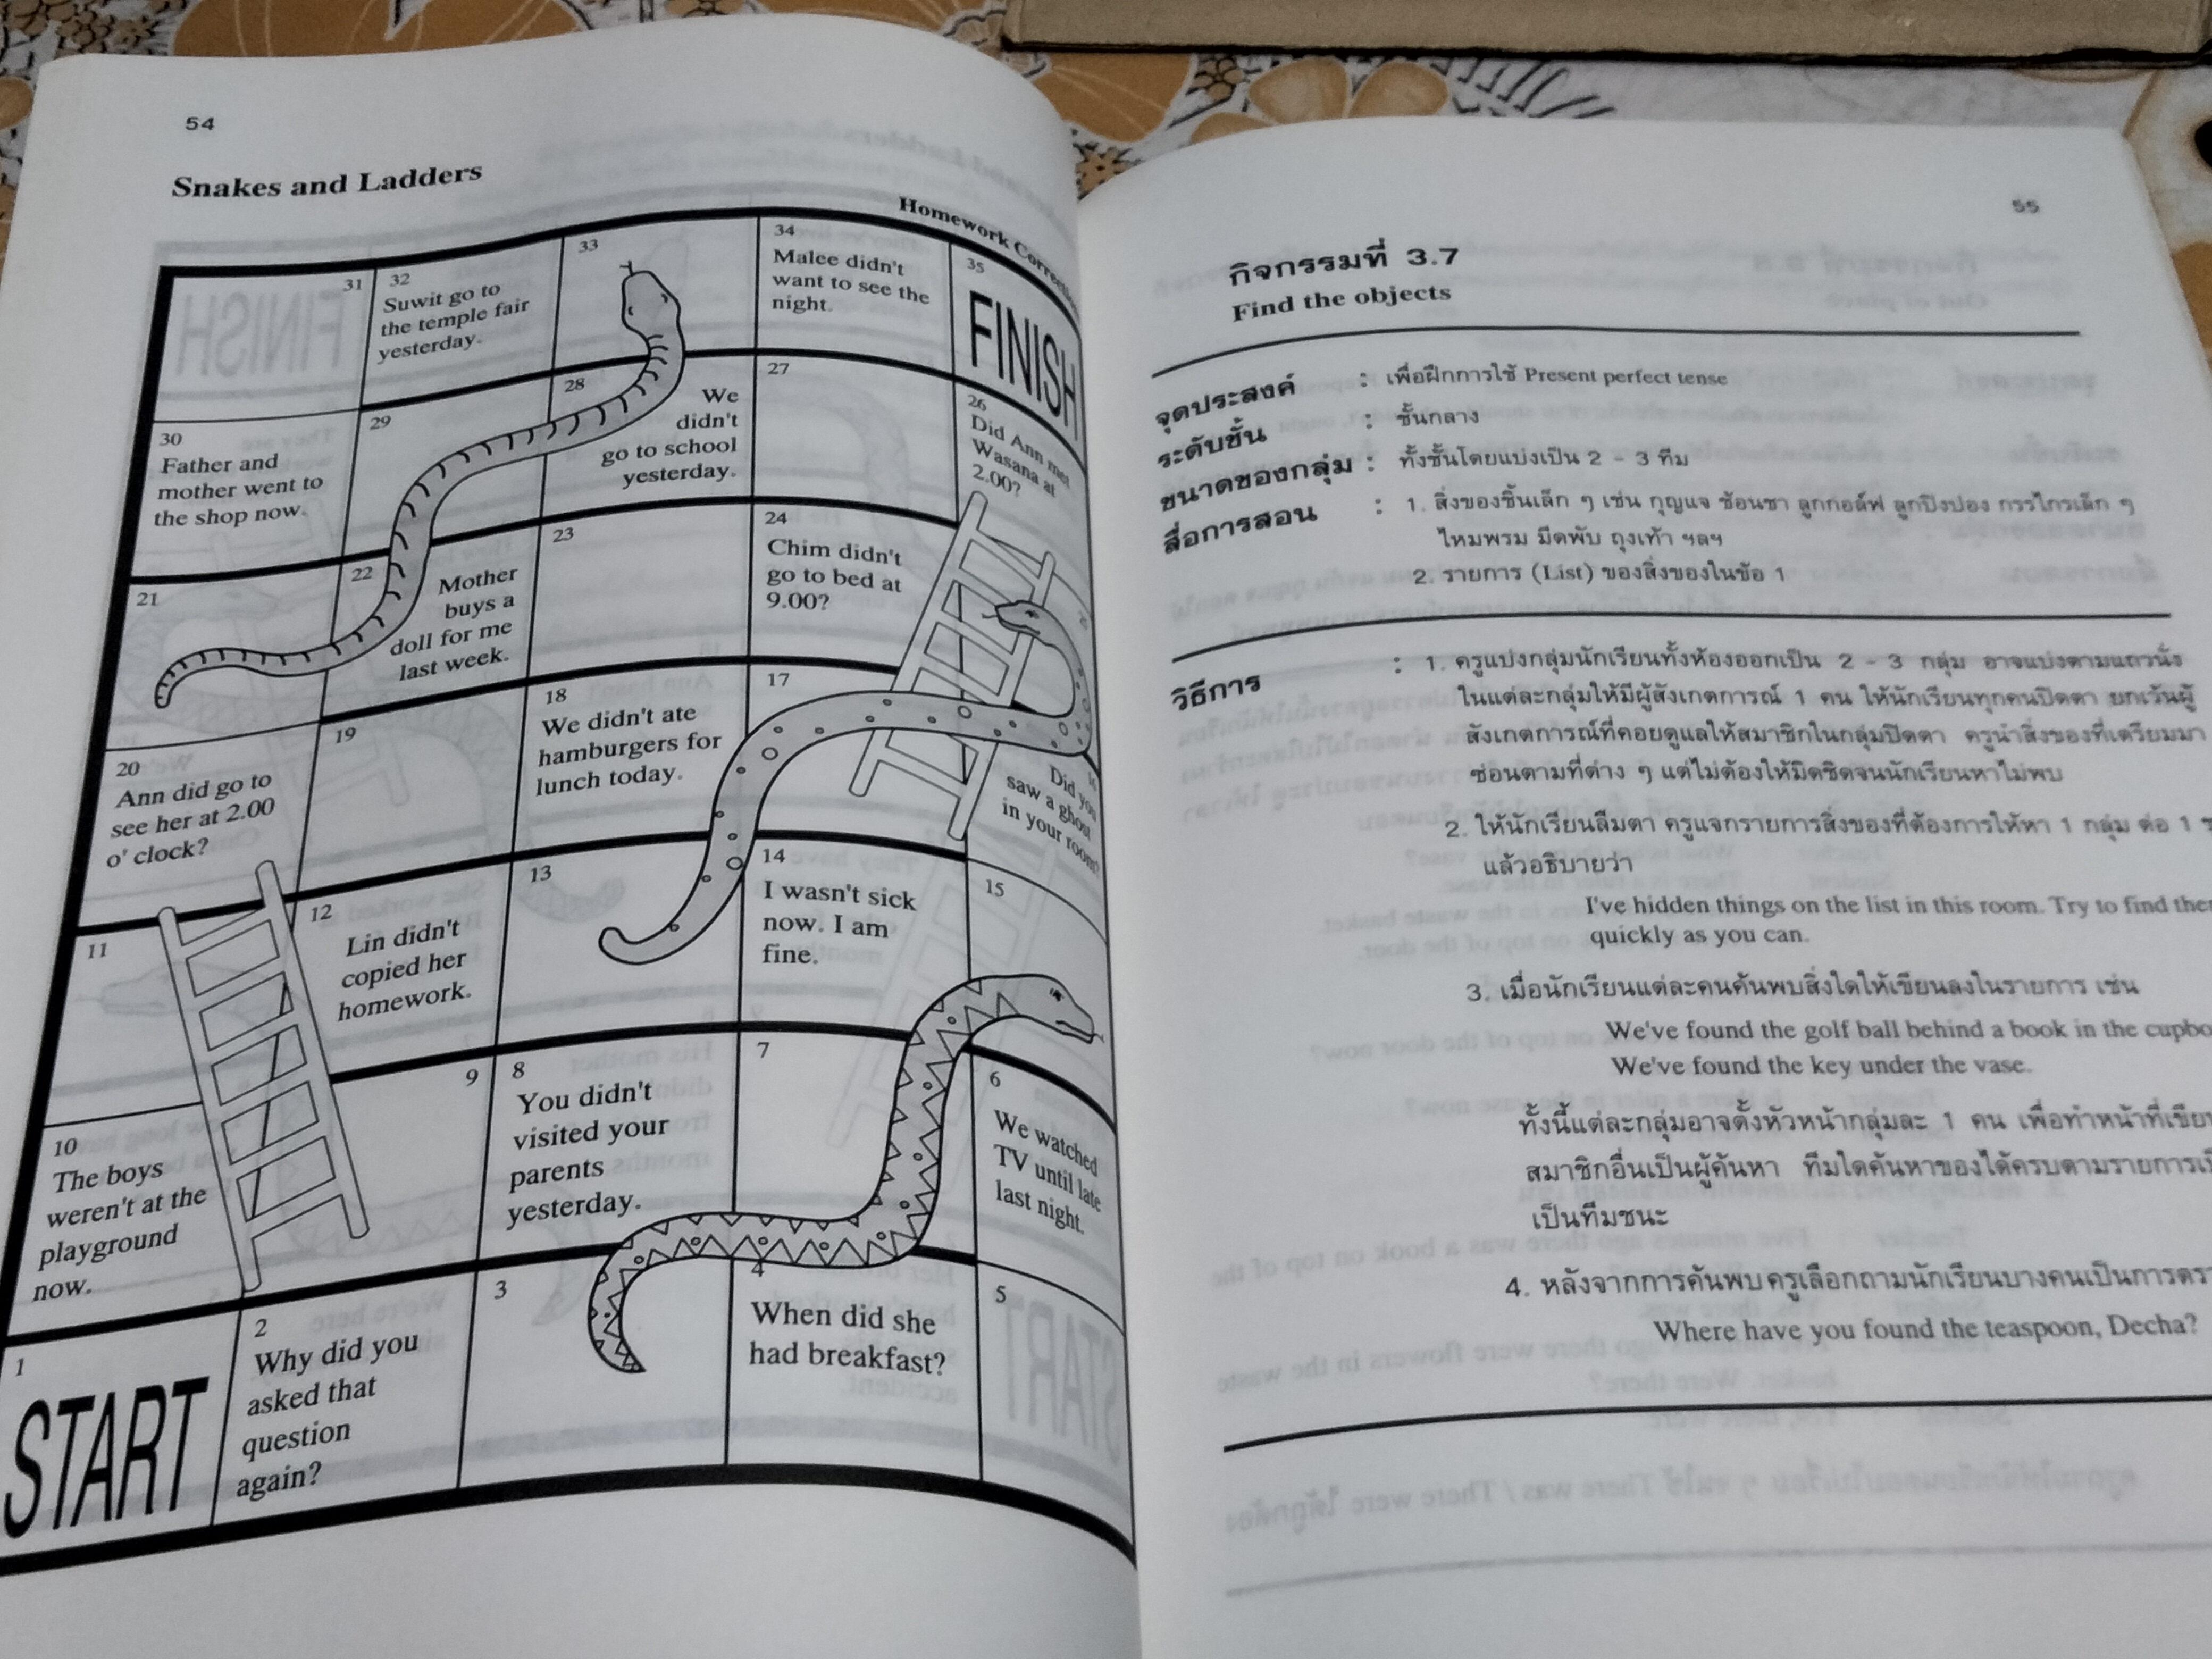 54
Snakes and Ladders
Homework
31
32
Suwit go to
the temple fair
yesterday.
33
34
Malee didn't
want to see the
night.
35
FINISH
30
Father and
mother went to
the shop now.
29
28
We
didn't
go to school
yesterday.
27
26
Did Ann met
Wasana at
2.00?
21
22
Mother
buys a
doll for me
last week.
23
24
Chim didn't
go to bed at
9.00?
20
Ann did go to
see her at 2.00
o' clock?
19
18
We didn't ate
hamburgers for
lunch today.
17
Did you
saw a ghost
in your room?
11
12
Lin didn't
copied her
homework.
13
14
I wasn't sick
now. I am
fine.
15
10
The boys
weren't at the
playground
now.
9
8
You didn't
visited your
parents
yesterday.
7
6
We watched
TV until late
last night.
1
START
2
Why did you
asked that
question
again?
3
4
When did she
had breakfast?
5
55
กิจกรรมที่ 3.7
Find the objects
จุดประสงค์ : เพื่อฝึกการใช้ Present perfect tense
ระดับชั้น : ชั้นกลาง
ขนาดของกลุ่ม : ทั้งชั้นโดยแบ่งเป็น 2 - 3 ทีม
สื่อการสอน : 1. สิ่งของชิ้นเล็ก ๆ เช่น กุญแจ ช้อนชา ลูกกอล์ฟ ลูกปิงปอง กรรไกรเล็ก ๆ
ไหมพรม มีดพับ ถุงเท้า ฯลฯ
2. รายการ (List) ของสิ่งของในข้อ 1
วิธีการ : 1. ครูแบ่งกลุ่มนักเรียนทั้งห้องออกเป็น 2 - 3 กลุ่ม อาจแบ่งตามแถวนั่ง
ในแต่ละกลุ่มให้มีผู้สังเกตการณ์ 1 คน ให้นักเรียนทุกคนปิดตา ยกเว้นผู้
สังเกตการณ์ที่คอยดูแลให้สมาชิกในกลุ่มปิดตา ครูนำสิ่งของที่เตรียมมา
ซ่อนตามที่ต่าง ๆ แต่ไม่ต้องให้มิดชิดจนนักเรียนหาไม่พบ
2. ให้นักเรียนลืมตา ครูแจกรายการสิ่งของที่ต้องการให้หา 1 กลุ่ม ต่อ 1
แล้วอธิบายว่า
I've hidden things on the list in this room. Try to find
quickly as you can.
3. เมื่อนักเรียนแต่ละคนค้นพบสิ่งใดให้เขียนลงในรายการ เช่น
We've found the golf ball behind a book in the
We've found the key under the vase.
ทั้งนี้แต่ละกลุ่มอาจตั้งหัวหน้ากลุ่มละ 1 คน เพื่อทำหน้าที่
สมาชิกอื่นเป็นผู้ค้นหา ทีมใดค้นหาของได้ครบตามรายการ
เป็นทีมชนะ
4. หลังจากการค้นพบ ครูเลือกถามนักเรียนบางคนเป็นการ
Where have you found the teaspoon, Decha?